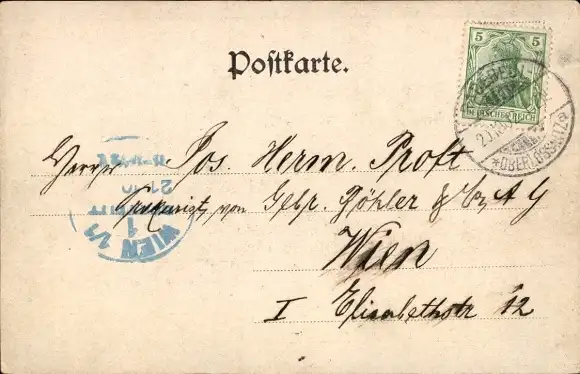 Postkarte.
5 5
DEUTSCHES REICH
*OBERLÖSSNITZ*
Herrn Jos. Herm. Proft
von Gebr. Böhler & Co, A G
Wien
I Elisabethstr 12
WIEN 1/1
1